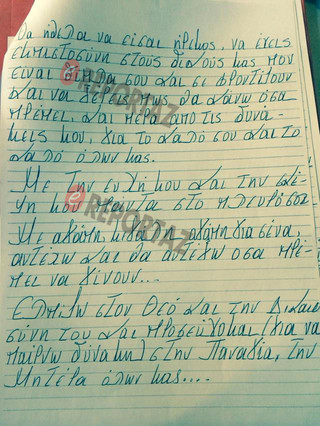 Θα ήθελα να είσαι ήρεμος, να έχεις
εμπιστοσύνη στους δικούς μας που
είναι δίπλα σου και σε φροντίζουν
και να ξέρεις πως θα κάνω όσα
πρέπει, και πέρα από τις δυνά-
μεις μου, για το καλό σου και το
καλό όλων μας.
Με την ευχή μου και την σκέ-
ψη μου πάντα στο πλευρό σου.
Με αγάπη, αγάπη για σένα,
αντέχω και θα αντέχω όσα πρέ-
πει να γίνουν...
Ελπίζω στον Θεό και την Δικαιο
σύνη του και προσεύχομαι (για να
παίρνω δύναμη) στην Παναγία, την
Μητέρα όλων μας....
REPORTAZ
REPORTAZ